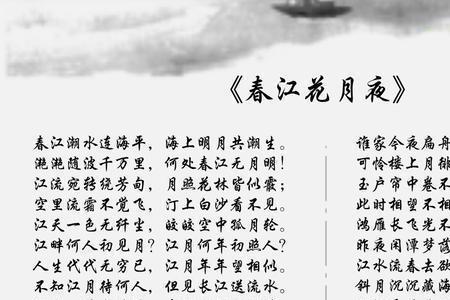 《春江花月夜》
春江潮水连海平，海上明月共潮生。
滟滟随波千万里，何处春江无月明！
江流宛转绕芳甸，月照花林皆似霰；
空里流霜不觉飞，汀上白沙看不见。
江天一色无纤尘，皎皎空中孤月轮。
江畔何人初见月？江月何年初照人？
人生代代无穷已，江月年年望相似。
不知江月待何人，但见长江送流水。
谁家今夜扁舟
可怜楼上月徘
玉户帘中卷不
此时相望不相
鸿雁长飞光不
昨夜闲潭梦落
江水流春去欲
斜月沉沉藏海